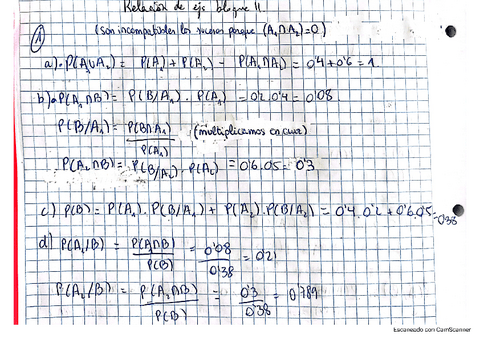 Relación de ejs bloque II
① (son incompatibles los sucesos porque (A₁∩A₂)=0)
a) P(A₁∪A₂) = P(A₁) + P(A₂) - P(A₁∩A₂) = 0'4+0'6 = 1
b) P(A₁∩B) = P(B/A₁) · P(A₁) = 0'2 · 0'4 = 0'08
P(B/A₁) = P(B∩A₁) / P(A₁) (multiplicamos en cruz)
P(A₂∩B) = P(B/A₂) · P(A₂) = 0'6 · 0'5 = 0'3
c) P(B) = P(A₁) · P(B/A₁) + P(A₂) · P(B/A₂) = 0'4 · 0'2 + 0'6 · 0'5 = 0'38
d) P(A₁/B) = P(A₁∩B) / P(B) = 0'08 / 0'38 = 0'21
P(A₂/B) = P(A₂∩B) / P(B) = 0'3 / 0'38 = 0'789
Escaneado con CamScanner